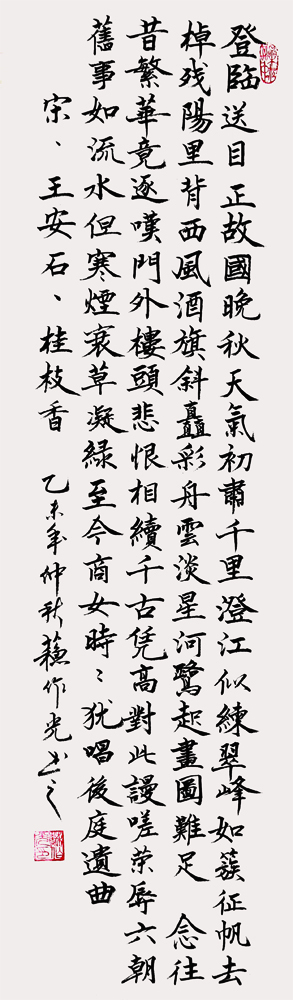 登臨送目正故國晚秋天氣初肅千里澄江似練翠峰如簇征帆去
棹残陽里背西風酒旗斜矗彩舟雲淡星河鷺起畫圖難足 念往
昔繁華竟逐嘆門外樓頭悲恨相續千古凭高對此謾嗟荣辱六朝
舊事如流水但寒煙衰草凝綠至今商女時〻犹唱後庭遺曲
宋、王安石、桂枝香 乙未年仲秋蘇作光书之